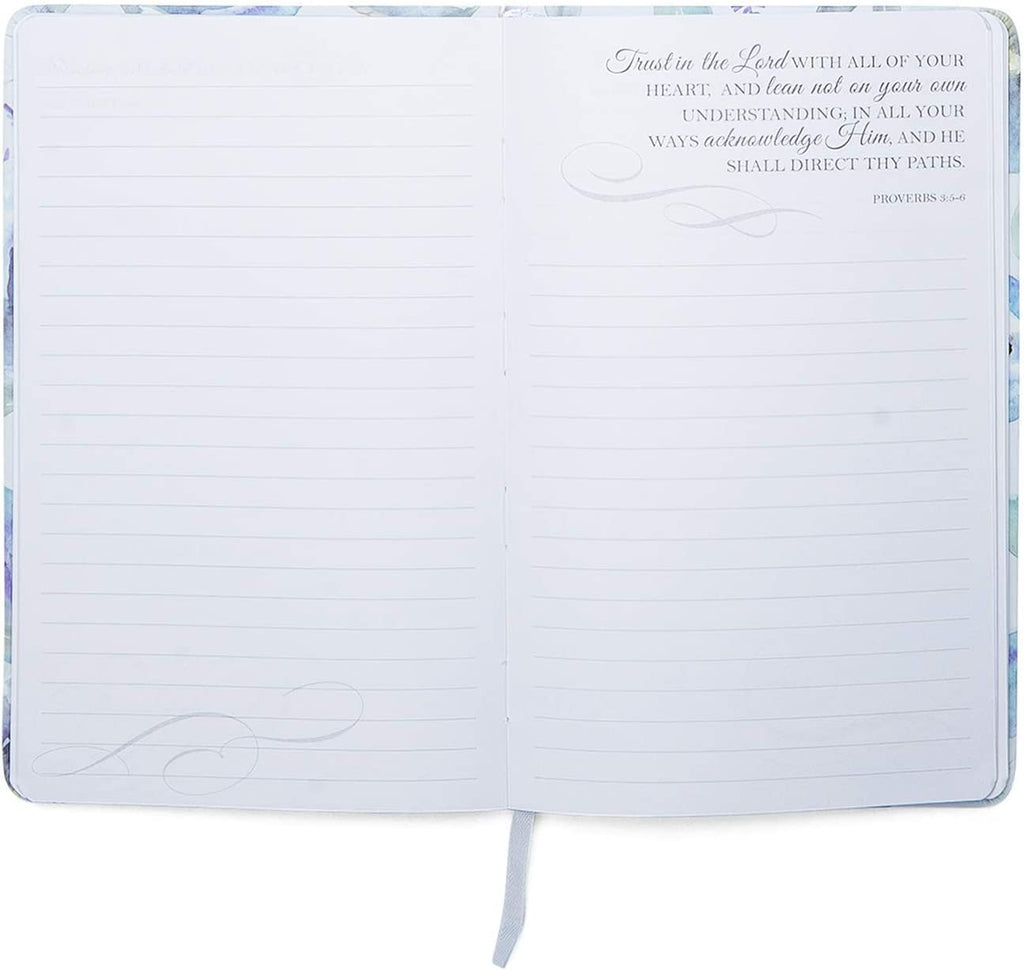 Trust in the Lord WITH ALL OF YOUR
HEART, AND lean not on your own
UNDERSTANDING; IN ALL YOUR
WAYS acknowledge Him, AND HE
SHALL DIRECT THY PATHS.
PROVERBS 3:5-6